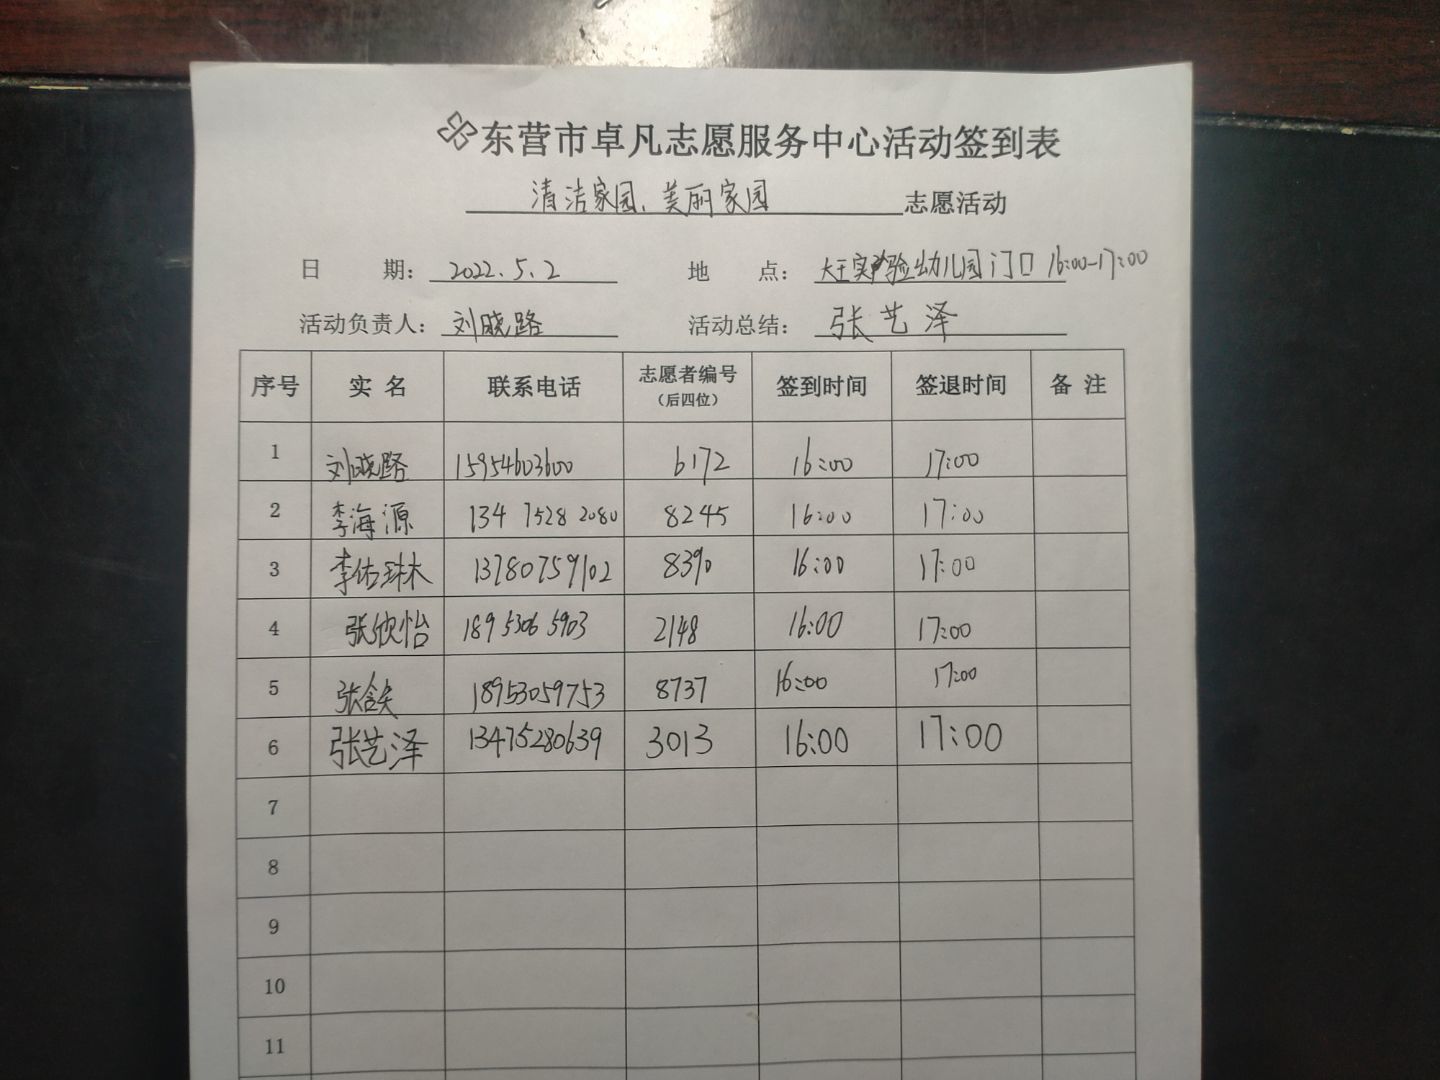 东营市卓凡志愿服务中心活动签到表
清洁家园、美丽家园 志愿活动
日 期： 2022.5.2 地 点： 大王实验幼儿园门口 16:00-17:00
活动负责人： 刘晓路 活动总结： 张艺泽
序号 实 名 联系电话 志愿者编号（后四位） 签到时间 签退时间 备 注
1 刘晓路 15954603600 6172 16:00 17:00
2 李海源 134 7528 2080 8245 16:00 17:00
3 李佑琳 13780759102 8390 16:00 17:00
4 张欣怡 189 5306 5903 2148 16:00 17:00
5 张 18953059753 8737 16:00 17:00
6 张艺泽 13475280639 3013 16:00 17:00
7
8
9
10
11